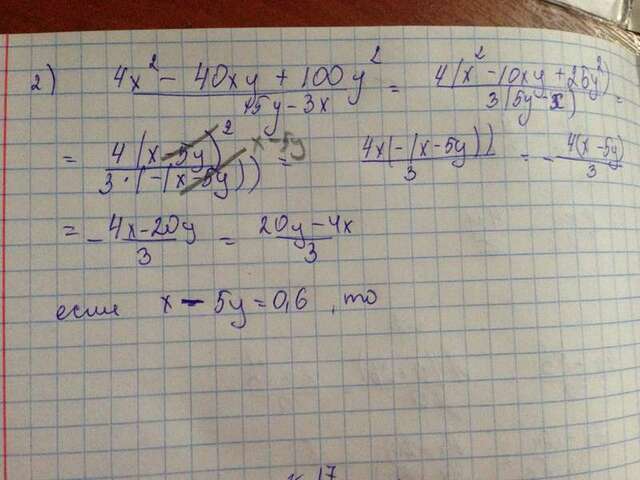 2) (4x² - 40xy + 100y²)/(15y - 3x) = 4(x² - 10xy + 25y²)/3(5y - x) =
= 4(x - 5y)²/3·(-(x - 5y)) x - 5y = 4×(-(x - 5y))/3 = - 4(x - 5y)/3
= - (4x - 20y)/3 = (20y - 4x)/3
если x - 5y = 0,6, то